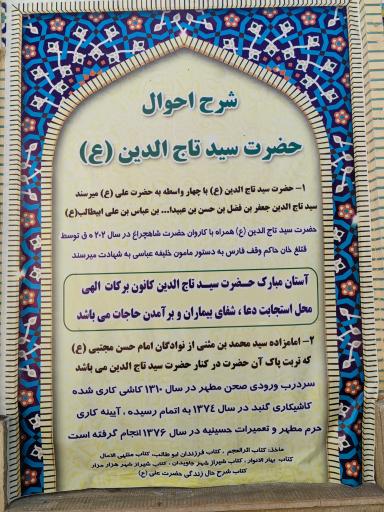 شرح احوال
حضرت سید تاج الدین (ع)
۱- حضرت سید تاج الدین (ع) با چهار واسطه به حضرت علی (ع) میرسند
سید تاج الدین جعفر بن فضل بن حسن بن عبیدا... بن عباس بن علی ابیطالب(ع)
حضرت سید تاج الدین (ع) همراه با کاروان حضرت شاهچراغ در سال ۲۰۲ ه ق توسط
قتلغ خان حاکم وقف فارس به دستور مامون خلیفه عباسی به شهادت میرسند
آستان مبارک حضرت سید تاج الدین کانون برکات الهی
محل استجابت دعا ، شفای بیماران و برآمدن حاجات می باشد
۲- امامزاده سید محمد بن مثنی از نوادگان امام حسن مجتبی (ع)
که تربت پاک آن حضرت در کنار حضرت سید تاج الدین می باشد
سردرب ورودی صحن مطهر در سال ۱۳۱۰ کاشی کاری شده
کاشیکاری گنبد در سال ۱۳۷۴ به اتمام رسیده ، آیینه کاری
حرم مطهر و تعمیرات حسینیه در سال ۱۳۷۶ انجام گرفته است
ماخذ: کتاب اثرالعجم ، کتاب فرزندان ابو طالب، کتاب منتهی الامال
کتاب بهار الانوار ، کتاب شیراز شهر جاویدان ، کتاب شیراز شهر هزار مزار
کتاب شرح حال زندگی حضرت علی (ع)